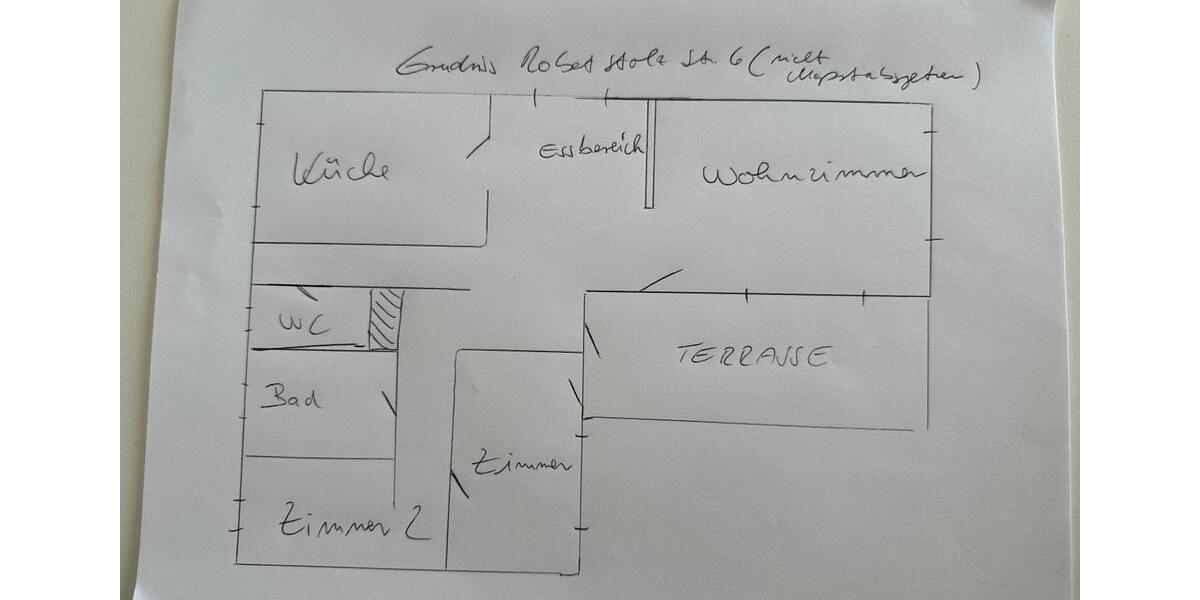 Grudnis Robert Stolz Str. 6 (nicht
Mapstabsgetreu)
Küche
Essbereich
Wohnzimmer
WC
TERRASSE
Bad
Zimmer
Zimmer 2